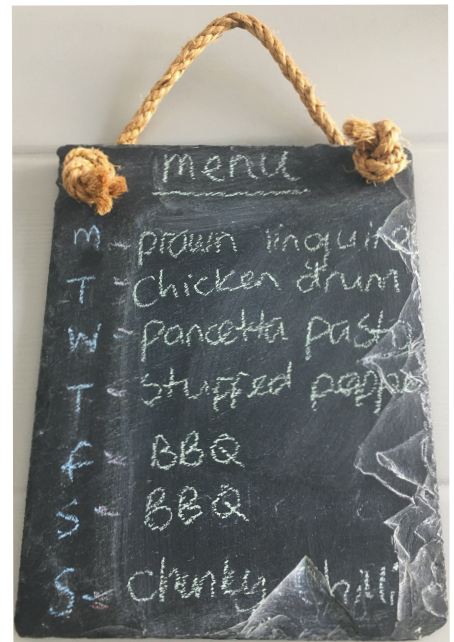 menu
M - prawn linguine
T - Chicken drum
W - pancetta pasta
T - stuffed peppe
F - BBQ
S - BBQ
S - chunky chilli